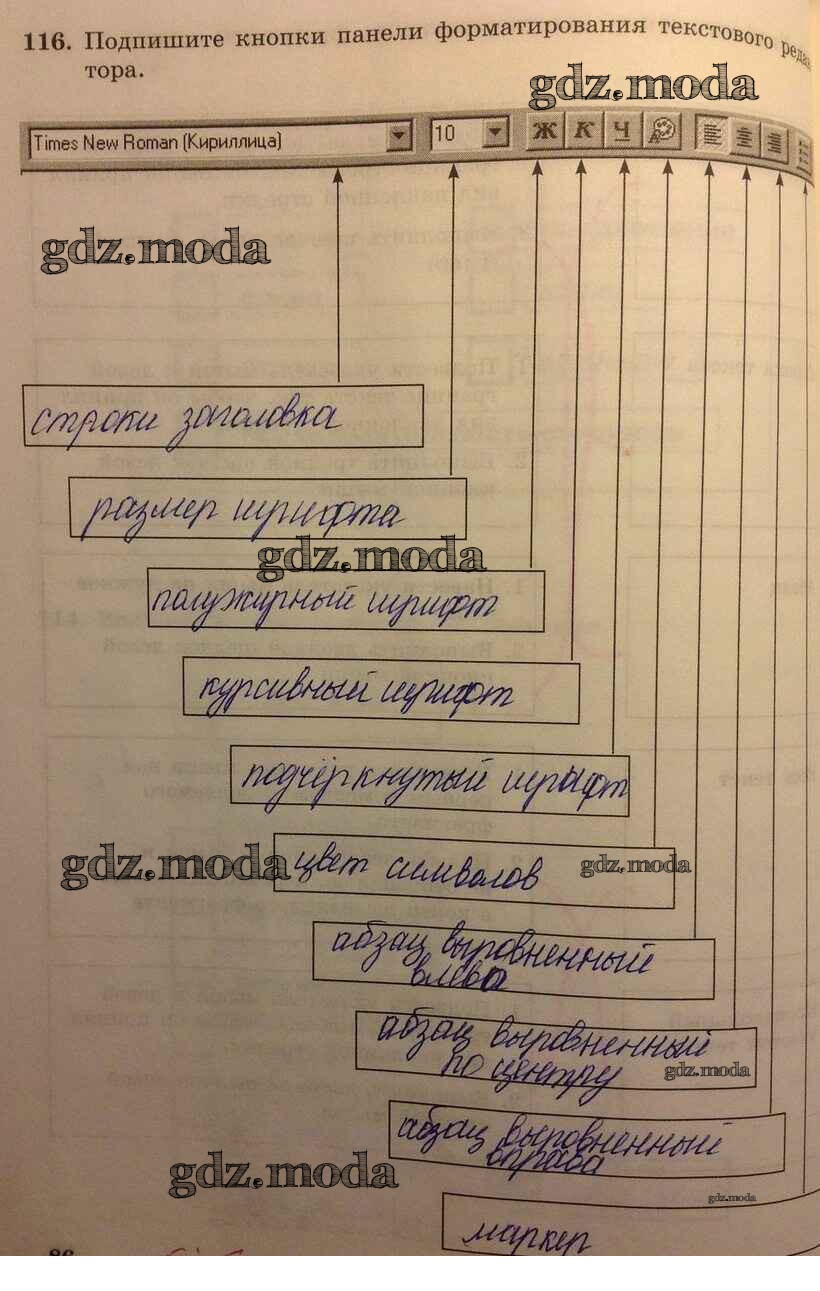 116. Подпишите кнопки панели форматирования текстового редак
тора.
gdz.moda
Times New Roman (Кириллица)
10
Ж К Ч
gdz.moda
строки заголовка
размер шрифта
gdz.moda
полужирный шрифт
курсивный шрифт
подчёркнутый шрифт
gdz.moda
цвет символов
gdz.moda
абзац выровненный
влево
абзац выровненный
по центру
gdz.moda
абзац выровненный
вправо
gdz.moda
gdz.moda
маркер
86